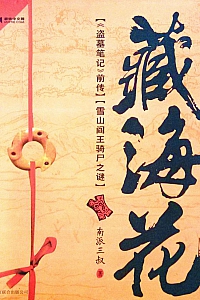 【《盗墓笔记》前传】
【雪山阎王骑尸之谜】
藏海花
南派三叔 著